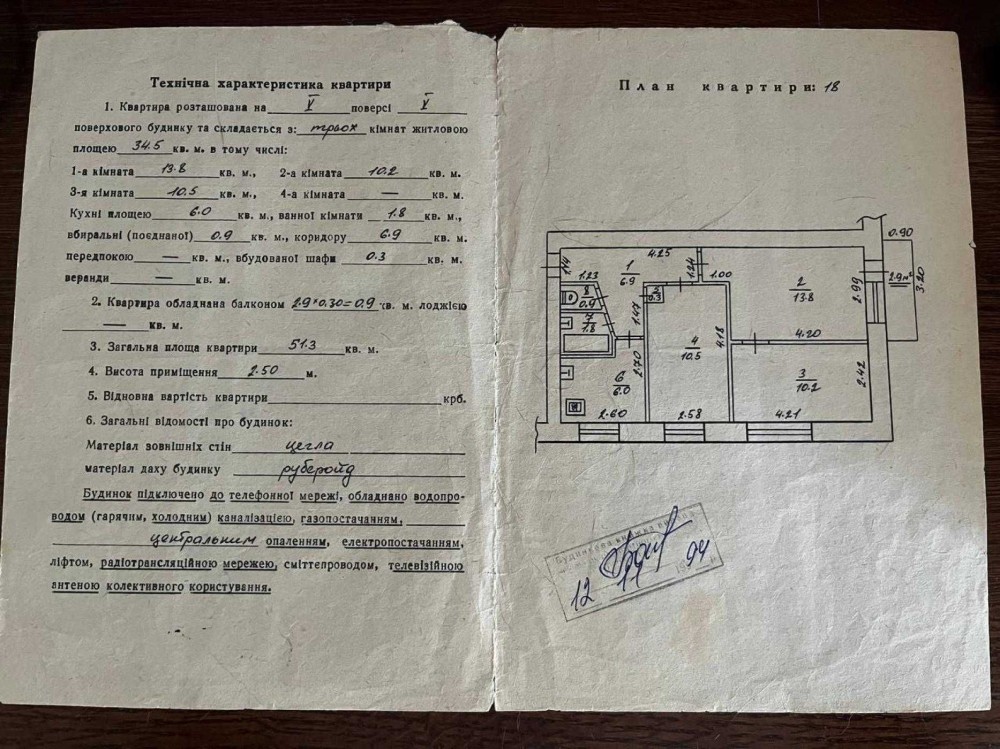 Технічна характеристика квартири
1. Квартира розташована на V поверсі V
поверхового будинку та складається з: трьох кімнат житловою
площею 34.5 кв. м. в тому числі:
1-а кімната 13.8 кв. м., 2-а кімната 10.2 кв. м.
3-я кімната 10.5 кв. м., 4-а кімната — кв. м.
Кухні площею 6.0 кв. м., ванної кімнати 1.8 кв. м.,
вбиральні (поєднаної) 0.9 кв. м., коридору 6.9 кв. м.
передпокою — кв. м., вбудованої шафи 0.3 кв. м.
веранди — кв. м.
2. Квартира обладнана балконом 2.9*0.30=0.9 кв. м. лоджією
— кв. м.
3. Загальна площа квартири 51.3 кв. м.
4. Висота приміщення 2.50 м.
5. Відновна вартість квартири крб.
6. Загальні відомості про будинок:
Матеріал зовнішніх стін цегла
матеріал даху будинку рубероїд
Будинок підключено до телефонної мережі, обладнано водопро-
водом (гарячим, холодним) каналізацією, газопостачанням,
центральним опаленням, електропостачанням,
ліфтом, радіотрансляційною мережею, сміттєпроводом, телевізійною
антеною колективного користування.
План квартири: 18
0.90
1.44
1.23
1
6.9
4.25
1.24
1.00
2
13.8
2.99
2.9м²
3.20
8
0.9
7
1.8
1.47
5
0.3
4.18
4.20
4
10.5
2.70
6
6.0
3
10.2
2.42
2.60
2.58
4.21
Будинкова книжка
12 11 94